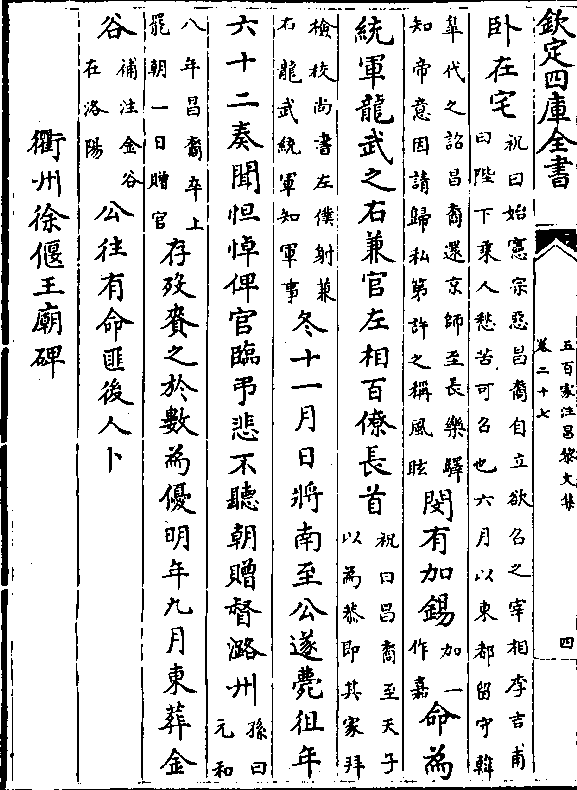 欽定四庫全書
五百家注昌黎文集
卷二十七
四
卧在宅祝曰始憲宗惡昌裔自立欲召之宰相李吉甫曰陛下乗人愁苦可召也六月以東都留守韓
臯代之詔昌裔還京師至長樂驛知帝意因請歸私第許之稱風眩閔有加錫加一作嘉命為
統軍龍武之右兼官左相百僚長首祝曰昌裔至天子以為恭即其家拜
檢校尚書左僕射兼右龍武統軍知軍事冬十一月日將南至公遂薨徂年
六十二奏聞怛悼俾官臨弔悲不聽朝贈督潞州孫曰元和
八年昌裔卒上罷朝一日贈官存歿賚之於數為優明年九月東葬金
谷補注金谷在洛陽公往有命匪後人卜
衢州徐偃王廟碑